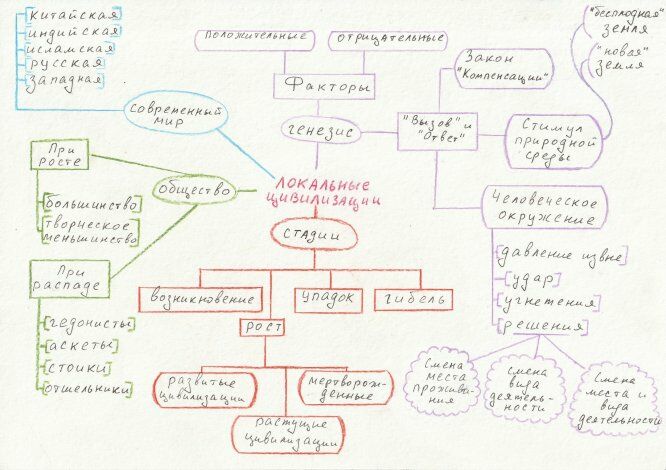 китайская
индийская
исламская
русская
западная
современный
мир
положительные
отрицательные
Факторы
генезис
Закон
"Компенсации"
"Вызов" и
"Ответ"
"бесплодная"
земля
"новая"
земля
Стимул
природной
среды
Человеческое
окружение
давление извне
удар
угнетения
решения
Смена
места
прожива-
ния
Смена
вида
деятель-
ности
Смена
места и
вида
деятельности
ЛОКАЛЬНЫЕ
ЦИВИЛИЗАЦИИ
общество
При
росте
большинство
творческое
меньшинство
При
распаде
гедонисты
аскеты
стоики
отшельники
стадии
возникновение
рост
упадок
гибель
развитые
цивилизации
растущие
цивилизации
мертворож-
денные